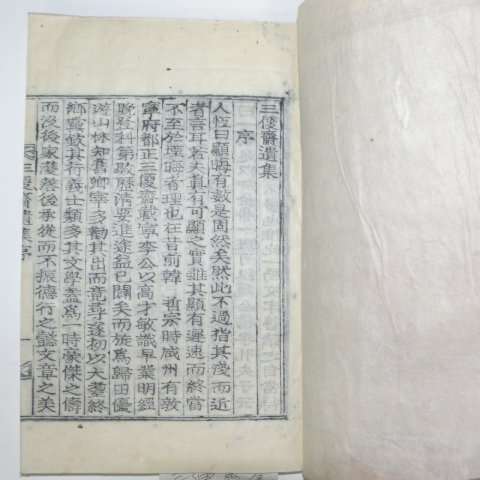 三偃齋遺集
序
人恒曰顯晦有數是固然矣然此不過指其淺而近
者言耳若夫眞有可顯之實雖其顯有遲速而終當
不至於堙晦者理也在昔前韓 哲宗時咸州有敦
寧府都正三偃齋載寧李公以高才敏識早業明經
晩登科第歇歷淸要進途益已闢矣而旋爲歸田優
遊山林知舊卿宰多勸其出而竟尊蓬初以大耋終
鄉黨欽其行義士類多其文學蓋爲一時豪傑之儔
而沒後家雙落後承從而不振德行之懿文章之美
三偃齋遺集序